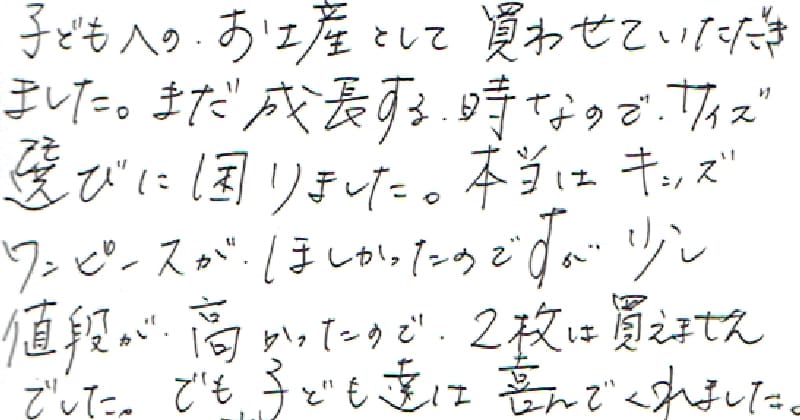 子どもへの.お土産として買わせていただき
ました。まだ成長する.時なので.サイズ
選びに困りました。本当はキッズ
ワンピースが.ほしかったのですが少し
値段が.高かったので.2枚は買えません
でした。でも子ども達は喜んでくれました。